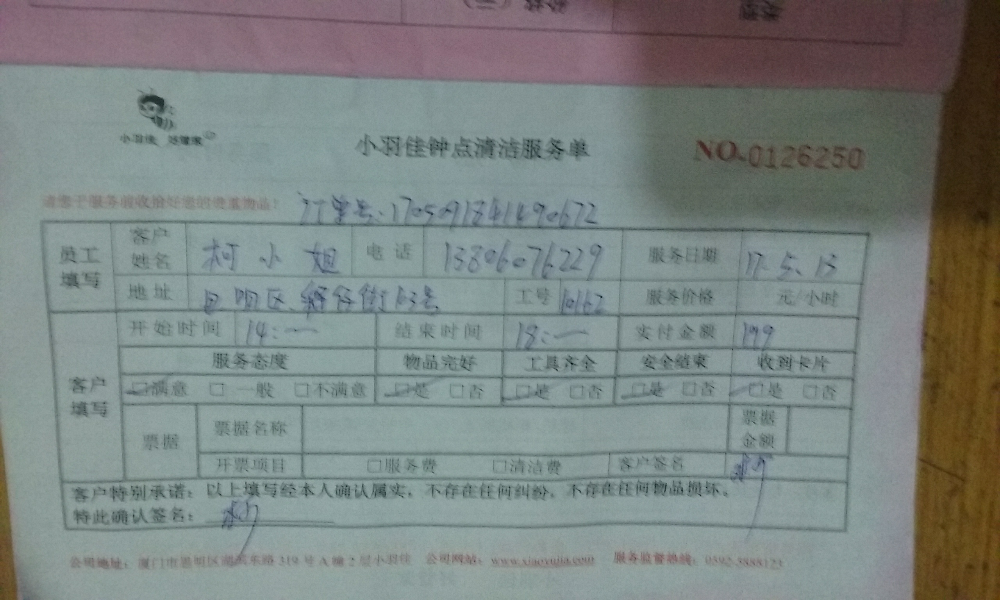 类型
价格（元）
小羽佳
小羽佳钟点清洁服务单
NO.0126250
请您于服务前收拾好您的贵重物品！
订单号：1705091841490672
员工填写
客户姓名 柯小姐 电话 13806076229 服务日期 17.5.13
地址 工号 10162 服务价格 元/小时
客户填写
开始时间 14：一 结束时间 18：一 实付金额 199
服务态度 物品完好 工具齐全 安全结束 收到卡片
□满意 □一般 □不满意 □是 □否 □是 □否 □是 □否 □是 □否
票据 票据名称 票据金额
开票项目 □服务费 □清洁费 客户签名
客户特别承诺：以上填写经本人确认属实，不存在任何纠纷，不存在任何物品损坏。
特此确认签名：
公司地址：厦门市思明区湖滨东路319号A幢2层小羽佳 公司网站：www.xiaoyujia.com 服务监督热线：0592-5888123